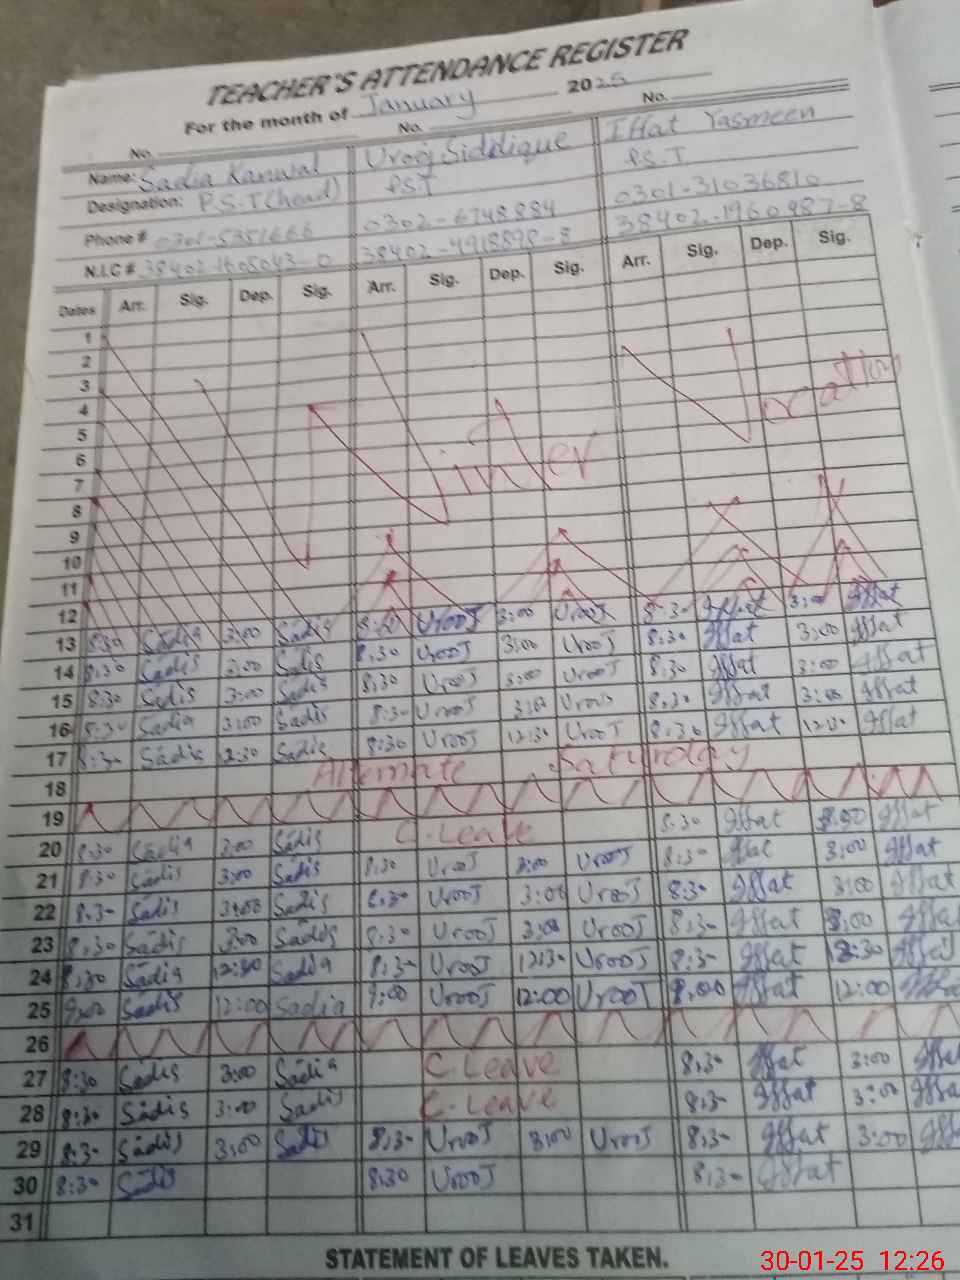 TEACHER'S ATTENDANCE REGISTER
For the month of January 2025
No. No. No.
Name: Sadia Kanwal Urooj Siddique Iffat Yasmeen
Designation: P.S.T (head) P.S.T P.S.T
Phone # 0301-5351666 0302-6748884 0301-31036810
N.I.C # 38402-1608043-0 38402-4918898-8 38402-1960987-8
Dates Arr. Sig. Dep. Sig. Arr. Sig. Dep. Sig. Arr. Sig. Dep. Sig.
1
2
3
4
5
6
7
8
9
10
11
12
Winter Vocation
13 8:30 Sadia 3:00 Sadis 8:30 UrooJ 3:00 UrooJ 8:30 Iffat 3:00 Iffat
14 8:30 Sadis 3:00 Sadis 8:30 UrooJ 3:00 UrooJ 8:30 Iffat 3:00 Iffat
15 8:30 Sadis 3:00 Sadis 8:30 UrooJ 3:00 UrooJ 8:30 Iffat 3:00 Iffat
16 8:30 Sadia 3:00 Sadis 8:30 UrooJ 3:00 UrooJ 8:30 Iffat 3:00 Iffat
17 8:30 Sadis 12:30 Sadis 8:30 UrooJ 12:30 UrooJ 8:30 Iffat 12:30 Iffat
18 Alternate Saturday
19
20 8:30 Sadia 3:00 Sadis C.Leave 8:30 Iffat Iffat
21 8:30 Sadis 3:00 Sadis 8:30 UrooJ 3:00 UrooJ 8:30 Iffat 3:00 Iffat
22 8:30 Sadis 3:00 Sadis 8:30 UrooJ 3:00 UrooJ 8:30 Iffat 3:00 Iffat
23 8:30 Sadis 3:00 Sadis 8:30 UrooJ 3:00 UrooJ 8:30 Iffat 3:00 Iffat
24 8:30 Sadis 12:30 Sadia 8:30 UrooJ 12:30 UrooJ 8:30 Iffat 12:30 Iffat
25 9:00 Sadis 12:00 Sadia 9:00 UrooJ 12:00 UrooJ Iffat 12:00
26
27 8:30 Sadis 3:00 Sadia C.Leave 8:30 Iffat 3:00
28 8:30 Sadis 3:00 Sadis C.Leave 8:30 Iffat 3:00
29 8:30 Sadis 3:00 Sadis 8:30 UrooJ 3:00 UrooJ 8:30 Iffat 3:00
30 8:30 Sadis 8:30 UrooJ 8:30 Iffat
31
STATEMENT OF LEAVES TAKEN.
30-01-25 12:26